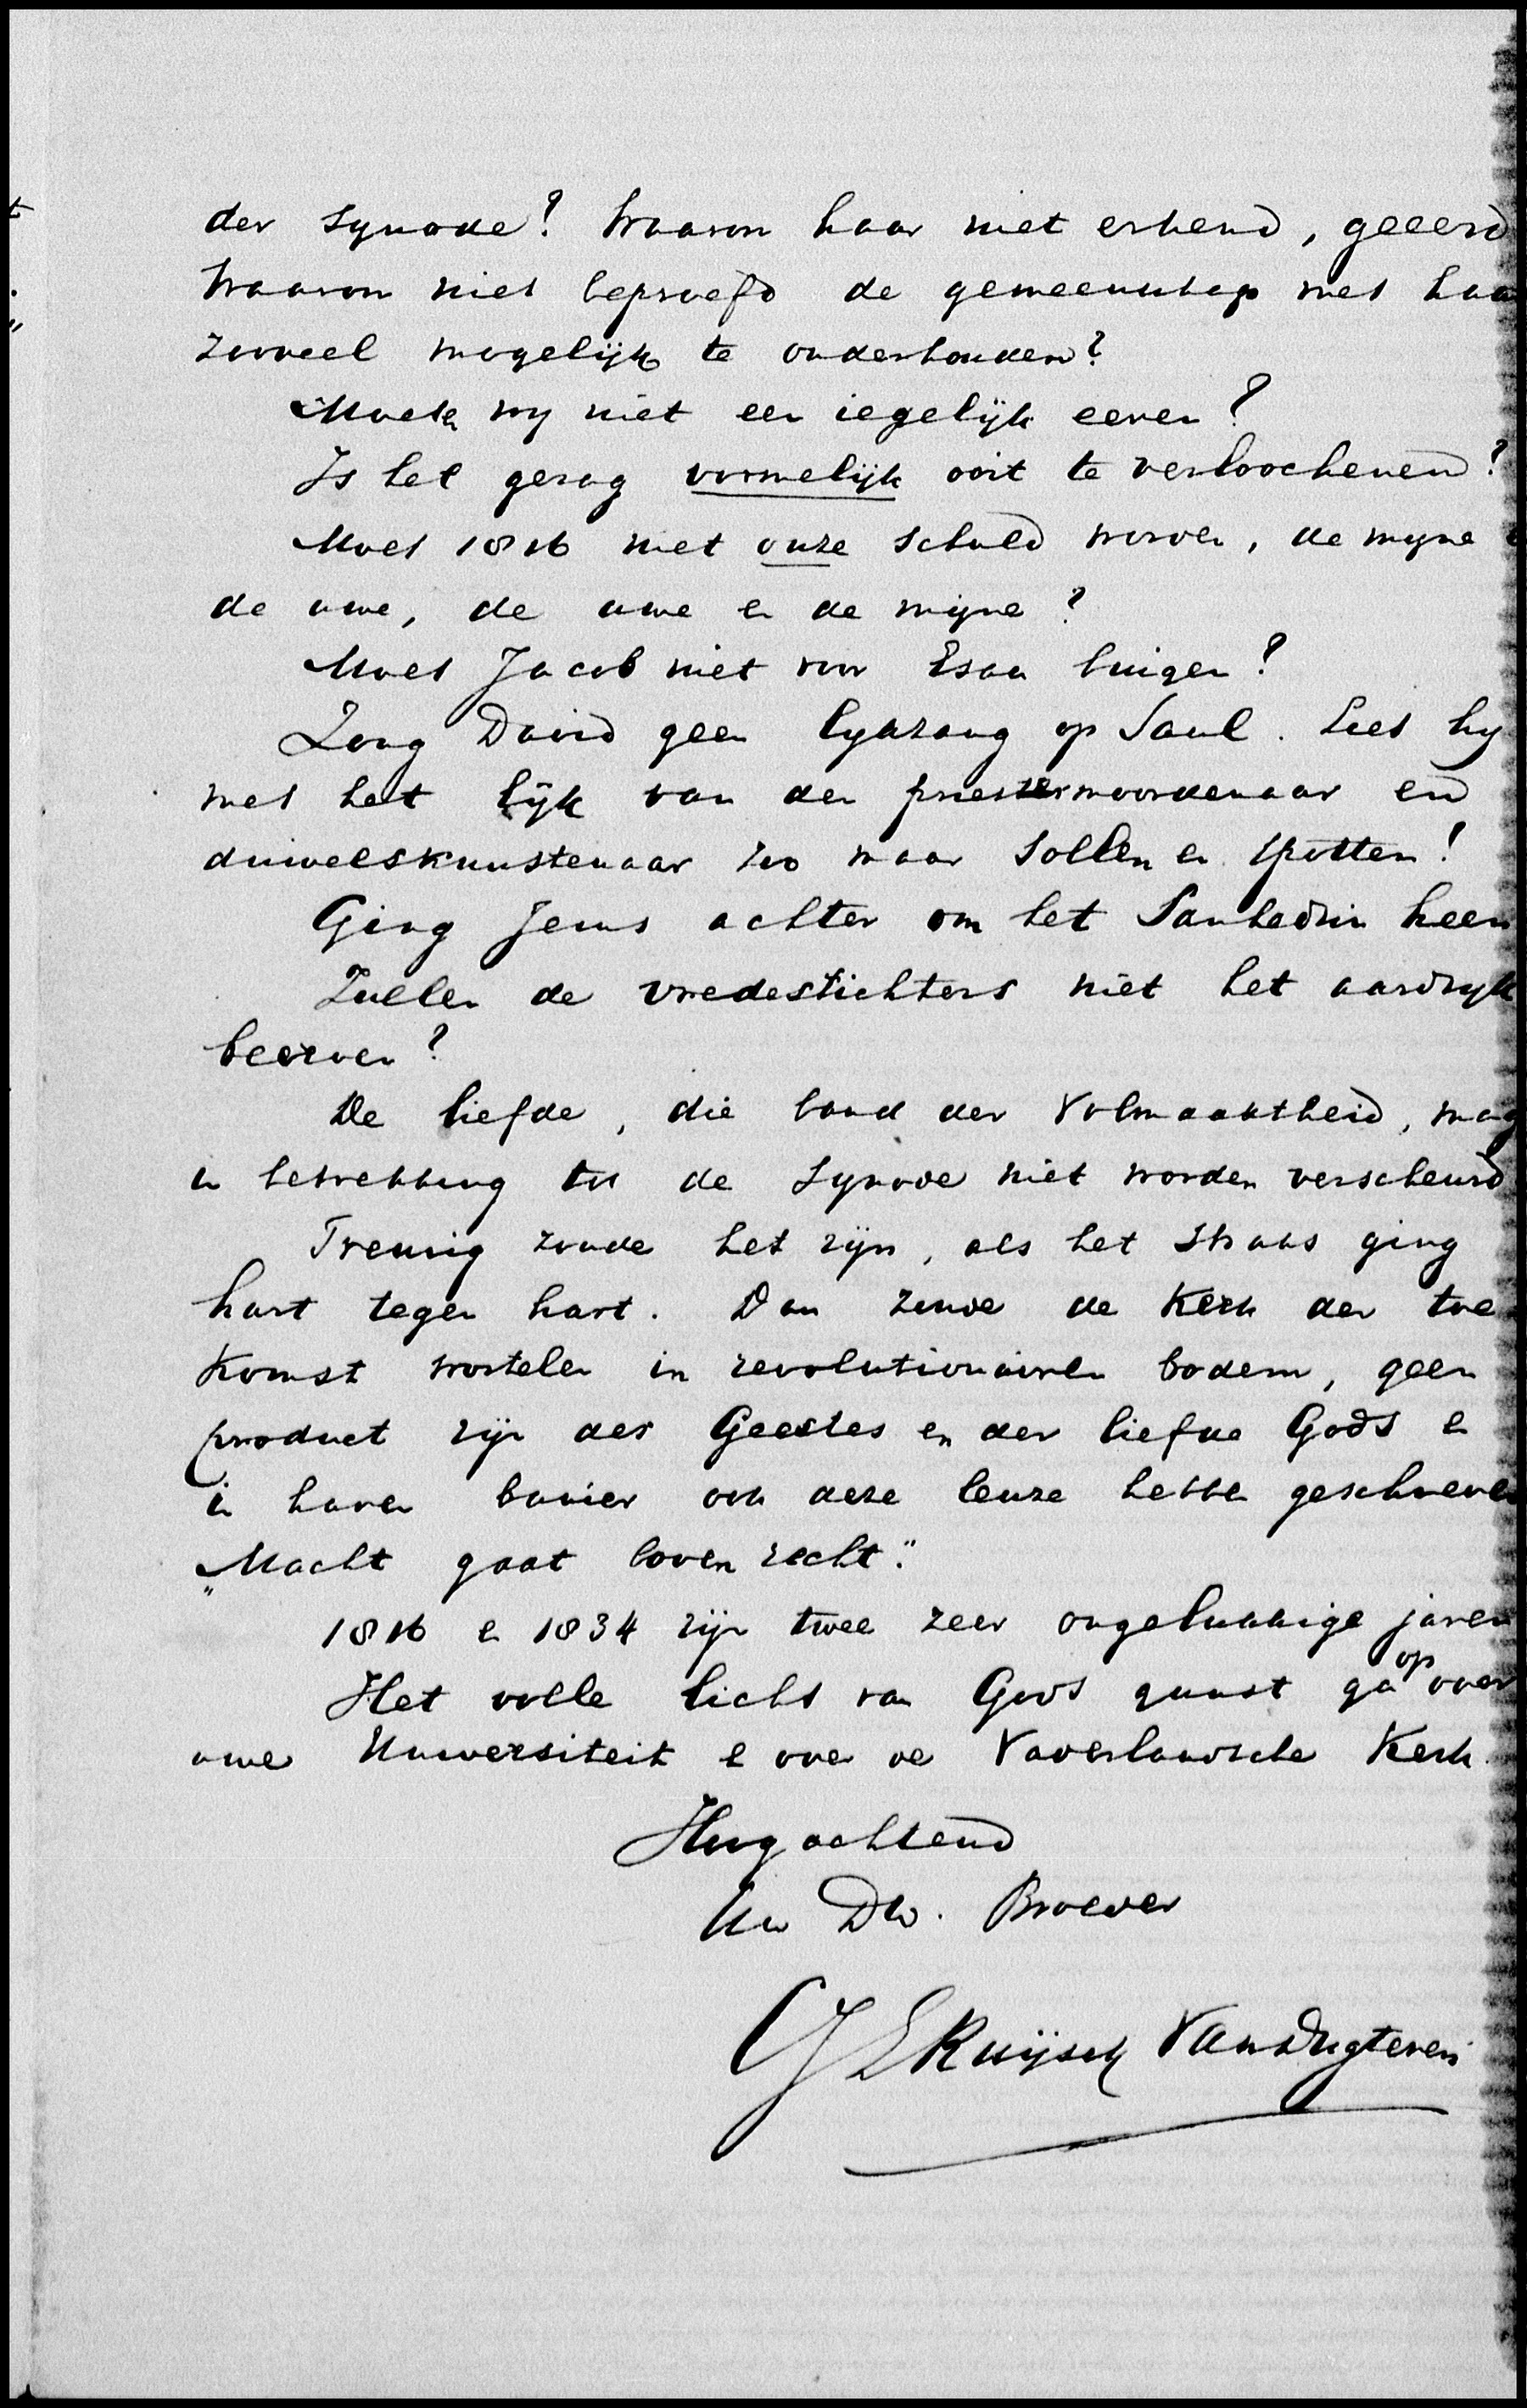 der Synode? Waarom haar niet erkend, geeerd
Waarom niet beproefd de gemeenschap met haa
zooveel mogelijk te onderhouden?
Moeten wy niet een iegelijk eeren?
Is het gezag vormelijk ooit te verloochenen?
Moet 1816 niet onze schuld worden, de myne e
de uwe, de uwe en de mijne?
Moet Jacob niet voor Esau buigen?
Zong David geen lykzang op Saul. Liet hy
met het lijk van den priestermoordenaar en
duivelskunstenaar zoo maar sollen en spotten!
Ging Jezus achter om het Sanhedrin heen
Zullen de vredestichters niet het aardryk
beerven?
De liefde, die band der Volmaaktheid, mag
in betrekking tot de Synode niet worden verscheurd
Treurig zoude het zijn, als het straks ging
hart tegen hart. Dan zoude de Kerk der toe
komst wortelen in revolutionairen bodem, geen
product zijn des Geestes en der liefde Gods en
in haren banier ook deze leuze hebben geschreven
"Macht gaat boven recht."
1816 en 1834 zijn twee zeer ongelukkige jaren
Het volle licht van Gods gunst ga op over
uwe Universiteit en over de Vaderlandsche Kerk.
Hoogachtend
Uw Dw. Broeder
CJE Ruijsch Van Dugteren